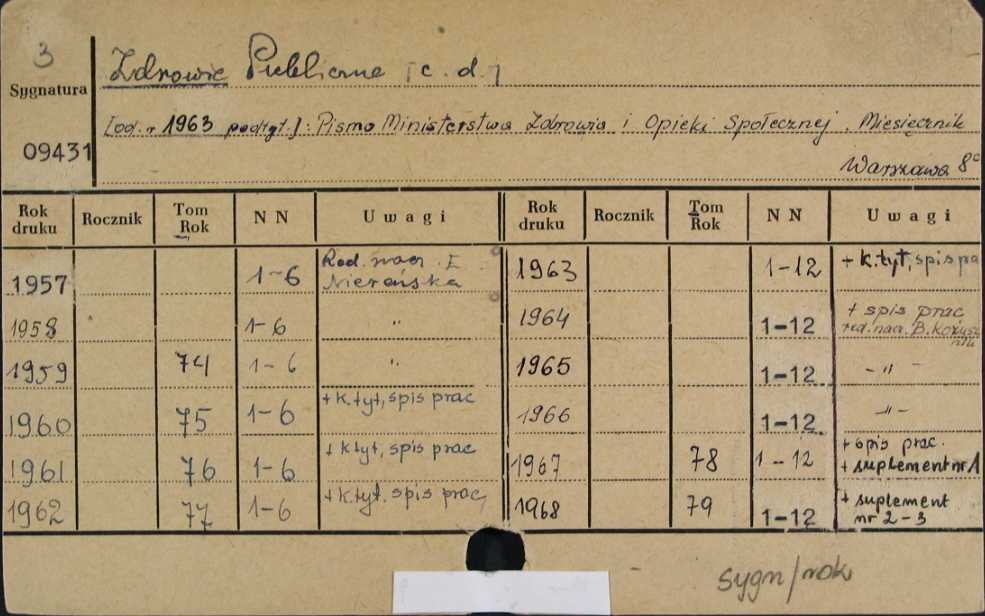 3
Zdrowie Publiczne [c. d.]
Sygnatura
09431
[od r 1963 podtyt.]: Pismo Ministerstwa Zdrowia i Opieki Społecznej. Miesięcznik
Warszawa 8°
Rok druku Rocznik Tom Rok NN Uwagi Rok druku Rocznik Tom Rok NN Uwagi
1957 1-6 Red. nacz. E.
1963 1-12 + k.tyt, spis pra
1958 1-6 "
1964 1-12 + spis prac
red. nacz. B. Kożusz
nik
1959 74 1-6 "
1965 1-12 - " -
1960 75 1-6 + k.tyt, spis prac
1966 1-12 -"-
1961 76 1-6 + k.tyt, spis prac
1967 78 1-12 + spis prac.
+ suplement nr 1
1962 77 1-6 + k.tyt. spis prac,
1968 79 1-12 + suplement
nr 2-3
sygn/rok